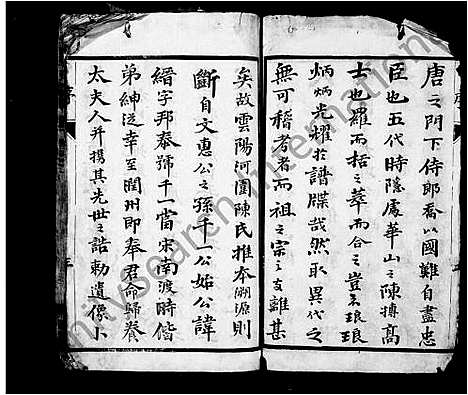 唐之門下侍郎喬以國難自盡忠
臣也五代時隱處華山之陳摶高
士也羅而括之萃而合之豈不琅琅
炳炳光耀於譜牒哉然取異代之
無可稽考者而祖之宗之支離甚
矣故雲陽河圍陳氏推本溯源則
斷自文惠公之孫千一公始公諱
縉字邦奉號千一當宋南渡時偕
弟紳泛幸至閏州即奉君命歸養
太夫人并揚其先世之誥勅遺像卜
序